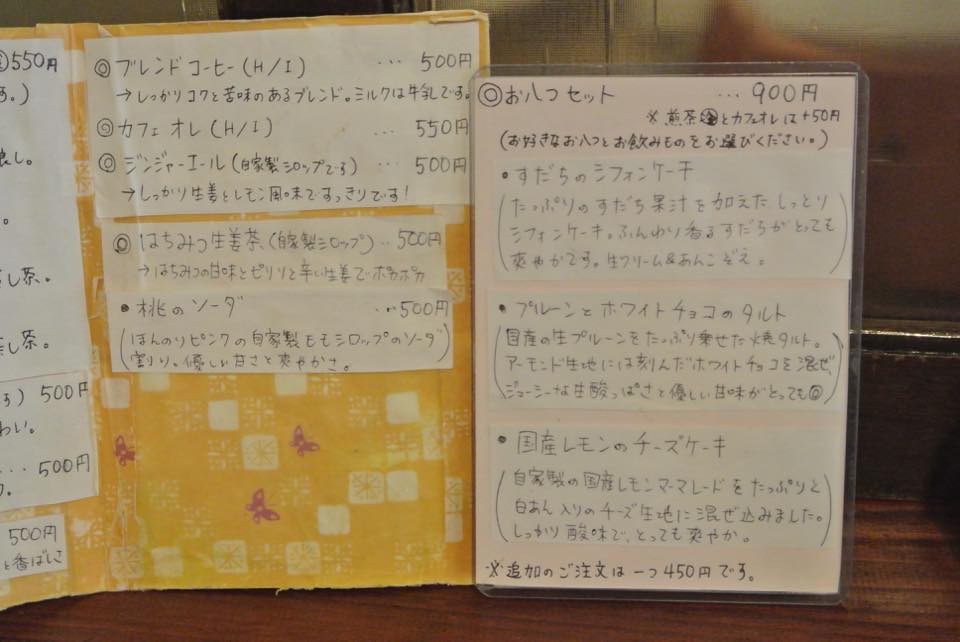 550円
す。)
し茶。
し茶。
500円
わい。
500円
500円
と香ばしさ
◎ ブレンドコーヒー(H/I) ... 500円
→しっかりコクと苦味のあるブレンド。ミルクは牛乳です。
◎ カフェオレ(H/I) ... 550円
◎ ジンジャーエール(自家製シロップです) 500円
→しっかり生姜とレモン風味ですっきりです!
◎ はちみつ生姜茶(自家製シロップ) ... 500円
→はちみつの甘味とピリリと辛い生姜でポカポカ
● 桃のソーダ ... 500円
(ほんのりピンクの自家製ももシロップのソーダ
割り。優しい甘さと爽やかさ。)
◎お八つセット ... 900円
※煎茶 とカフェオレは+50円
(お好きなお八つとお飲みものをお選びください。)
● すだちのシフォンケーキ
(たっぷりのすだち果汁を加えたしっとり
シフォンケーキ。ふんわり香るすだちがとっても
爽やかです。生クリーム&あんこぞえ。)
● プルーンとホワイトチョコのタルト
(国産の生プルーンをたっぷり乗せた焼タルト。
アーモンド生地には刻んだホワイトチョコを混ぜ、
ジューシーな生酸っぱさと優しい甘味がとっても◎)
● 国産レモンのチーズケーキ
(自家製の国産レモンマーマレードをたっぷりと
白あん入りのチーズ生地に混ぜ込みました。
しっかり酸味で、とっても爽やか。)
※追加のご注文は一つ450円です。